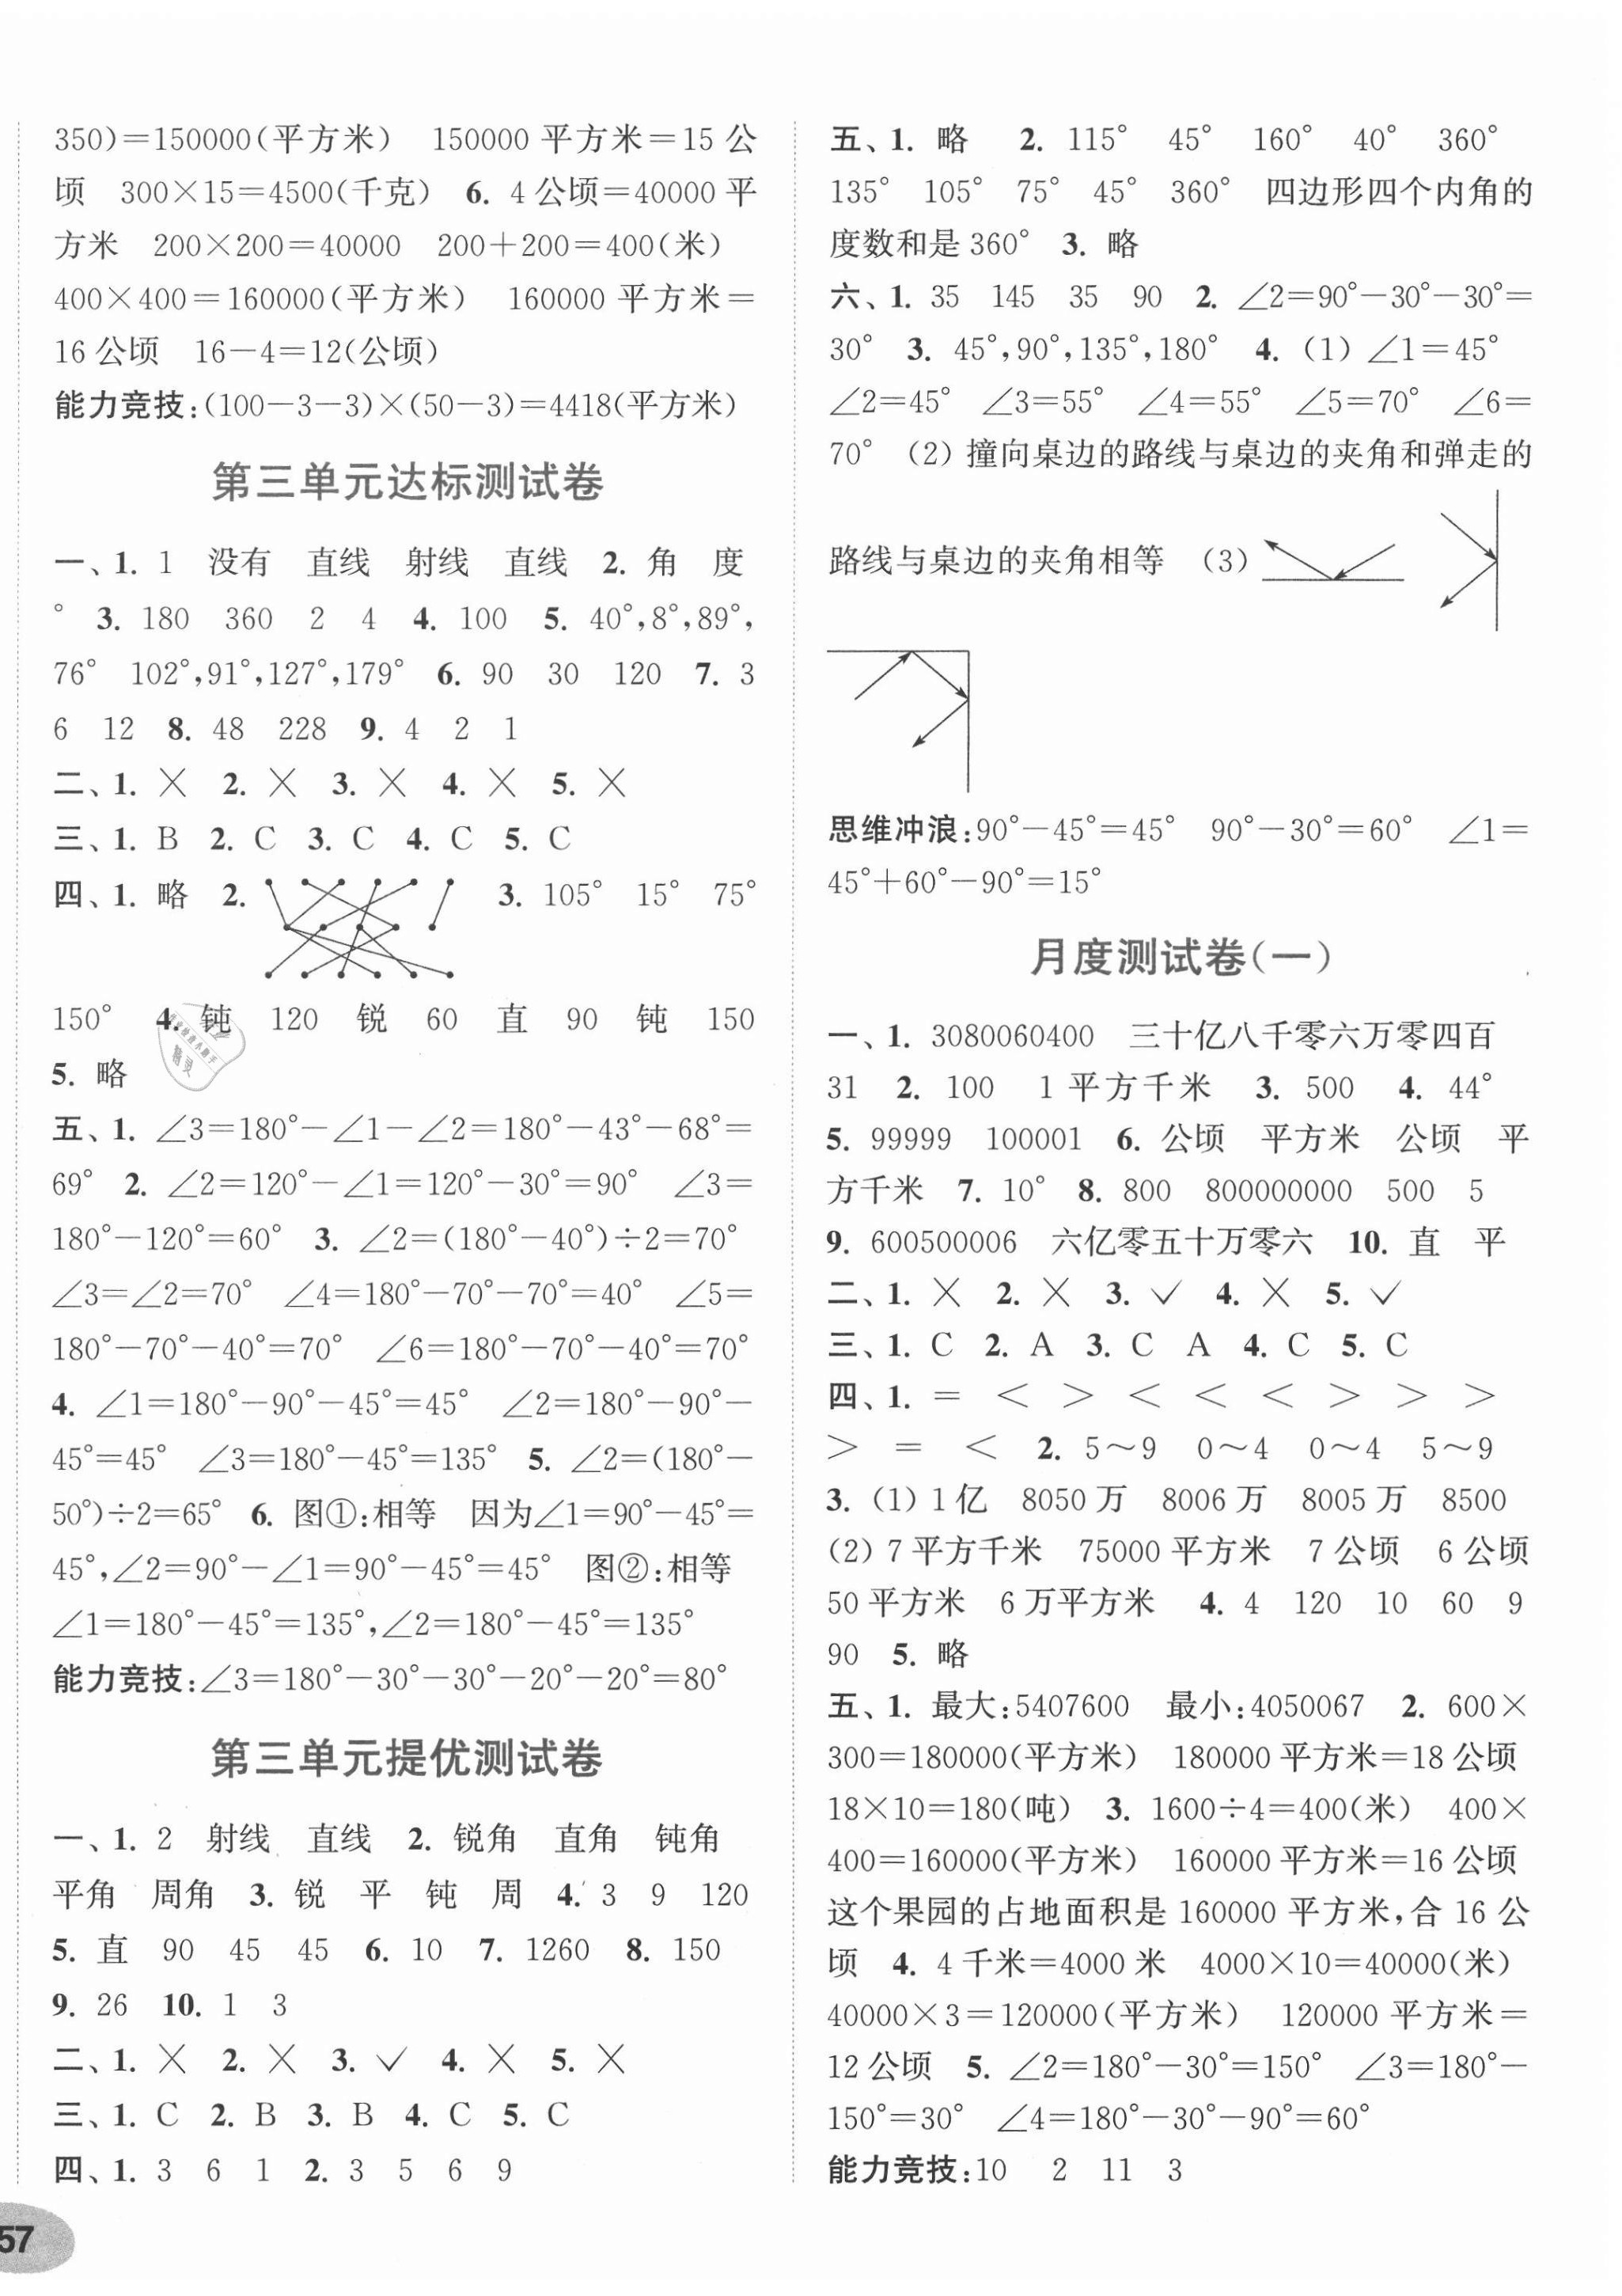 350)=150000(平方米)　150000 平方米=15 公
顷　300×15=4500(千克)　6. 4 公顷=40000 平
方米　200×200=40000　200+200=400(米)
400×400=160000(平方米)　160000 平方米=
16 公顷　16-4=12(公顷)
能力竞技:(100-3-3)×(50-3)=4418(平方米)
第三单元达标测试卷
一、1. 1　没有　直线　射线　直线　2. 角　度
°　3. 180　360　2　4　4. 100　5. 40°,8°,89°,
76°　102°,91°,127°,179°　6. 90　30　120　7. 3
6　12　8. 48　228　9. 4　2　1
二、1. ×　2. ×　3. ×　4. ×　5. ×
三、1. B　2. C　3. C　4. C　5. C
四、1. 略　2.　3. 105°　15°　75°
150°　4. 钝　120　锐　60　直　90　钝　150
5. 略
五、1. ∠3=180°-∠1-∠2=180°-43°-68°=
69°　2. ∠2=120°-∠1=120°-30°=90°　∠3=
180°-120°=60°　3. ∠2=(180°-40°)÷2=70°
∠3=∠2=70°　∠4=180°-70°-70°=40°　∠5=
180°-70°-40°=70°　∠6=180°-70°-40°=70°
4. ∠1=180°-90°-45°=45°　∠2=180°-90°-
45°=45°　∠3=180°-45°=135°　5. ∠2=(180°-
50°)÷2=65°　6. 图①:相等　因为∠1=90°-45°=
45°,∠2=90°-∠1=90°-45°=45°　图②:相等
∠1=180°-45°=135°,∠2=180°-45°=135°
能力竞技:∠3=180°-30°-30°-20°-20°=80°
第三单元提优测试卷
一、1. 2　射线　直线　2. 锐角　直角　钝角
平角　周角　3. 锐　平　钝　周　4. 3　9　120
5. 直　90　45　45　6. 10　7. 1260　8. 150
9. 26　10. 1　3
二、1. ×　2. ×　3. ✓　4. ×　5. ×
三、1. C　2. B　3. B　4. C　5. C
四、1. 3　6　1　2. 3　5　6　9
57
五、1. 略　2. 115°　45°　160°　40°　360°
135°　105°　75°　45°　360°　四边形四个内角的
度数和是 360°　3. 略
六、1. 35　145　35　90　2. ∠2=90°-30°-30°=
30°　3. 45°,90°,135°,180°　4. (1) ∠1=45°
∠2=45°　∠3=55°　∠4=55°　∠5=70°　∠6=
70°　(2) 撞向桌边的路线与桌边的夹角和弹走的
路线与桌边的夹角相等　(3)
思维冲浪:90°-45°=45°　90°-30°=60°　∠1=
45°+60°-90°=15°
月度测试卷(一)
一、1. 3080060400　三十亿八千零六万零四百
31　2. 100　1 平方千米　3. 500　4. 44°
5. 99999　100001　6. 公顷　平方米　公顷　平
方千米　7. 10°　8. 800　800000000　500　5
9. 600500006　六亿零五十万零六　10. 直　平
二、1. ×　2. ×　3. ✓　4. ×　5. ✓
三、1. C　2. A　3. C　A　4. C　5. C
四、1. =　<　>　<　<　<　>　>　>
>　=　<　2. 5～9　0～4　0～4　5～9
3. (1) 1 亿　8050 万　8006 万　8005 万　8500
(2) 7 平方千米　75000 平方米　7 公顷　6 公顷
50 平方米　6 万平方米　4. 4　120　10　60　9
90　5. 略
五、1. 最大:5407600　最小:4050067　2. 600×
300=180000(平方米)　180000 平方米=18 公顷
18×10=180(吨)　3. 1600÷4=400(米)　400×
400=160000(平方米)　160000 平方米=16 公顷
这个果园的占地面积是 160000 平方米,合 16 公
顷　4. 4 千米=4000 米　4000×10=40000(米)
40000×3=120000(平方米)　120000 平方米=
12 公顷　5. ∠2=180°-30°=150°　∠3=180°-
150°=30°　∠4=180°-30°-90°=60°
能力竞技:10　2　11　3